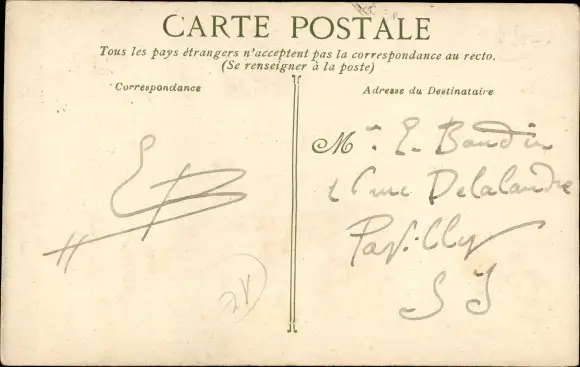 CARTE POSTALE
Tous les pays étrangers n'acceptent pas la correspondance au recto.
(Se renseigner à la poste)
Correspondance
Adresse du Destinataire
M E. Baudin
rue Delalandre
Pavilly
S I